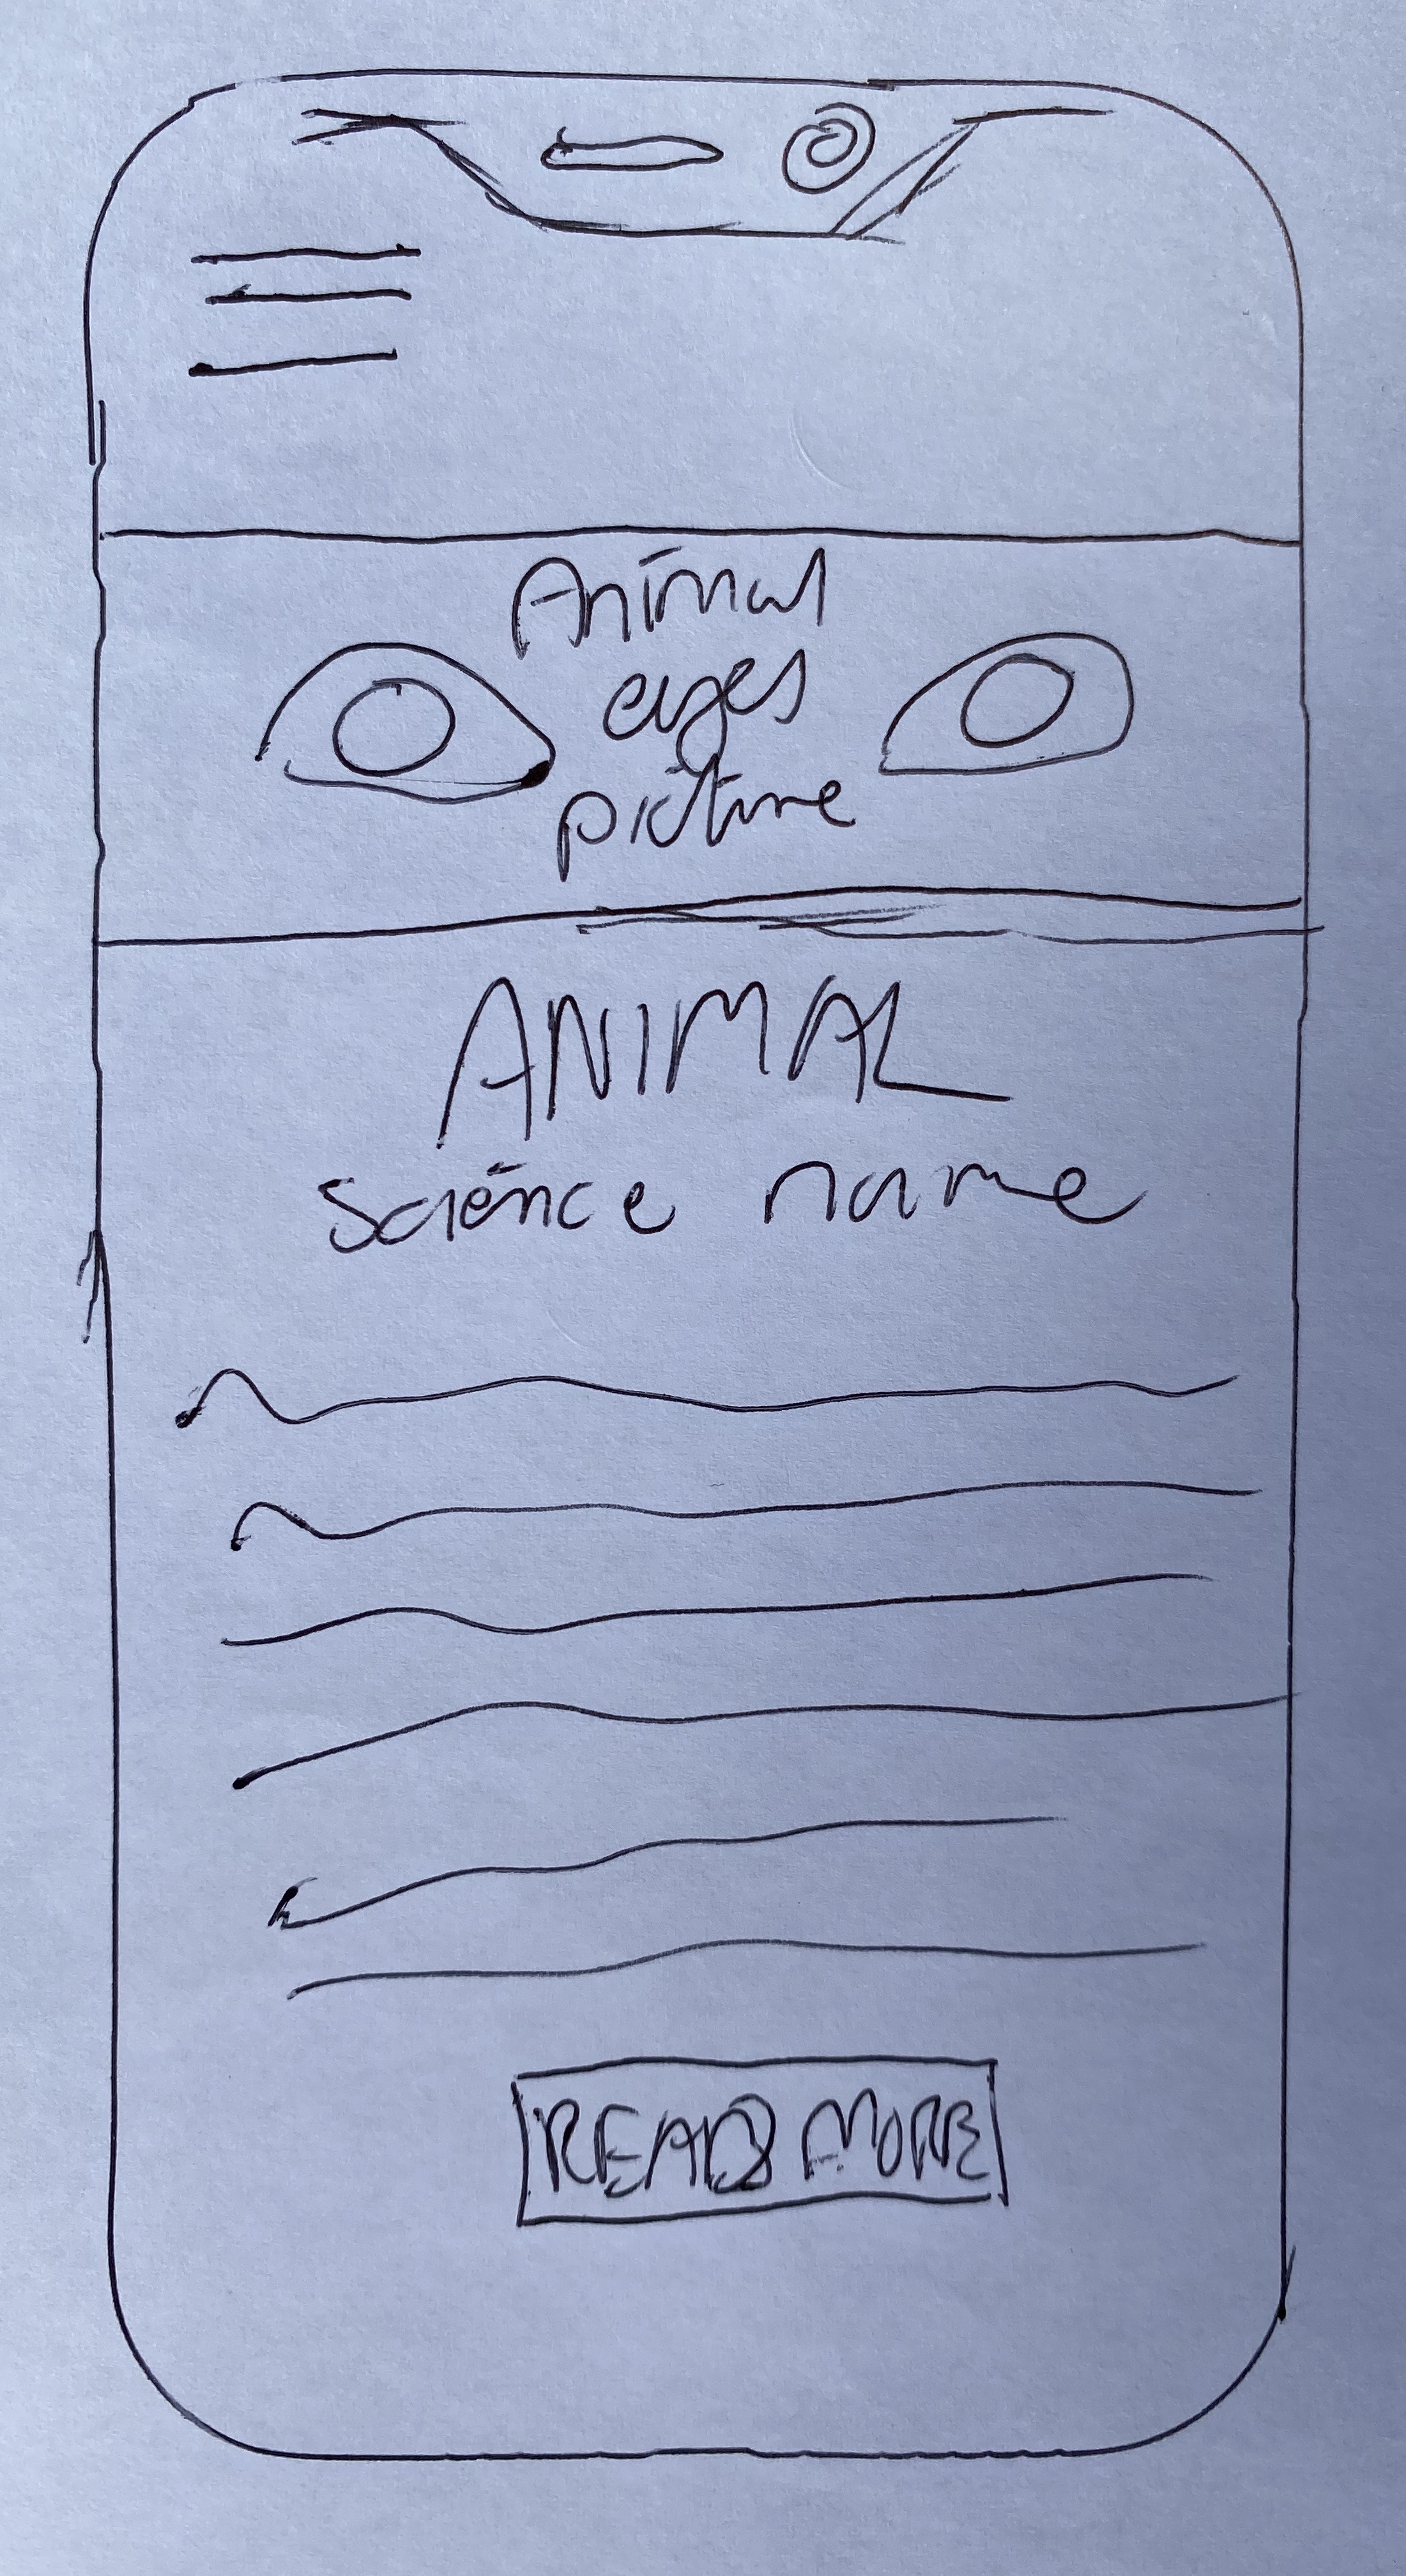 Animal
eyes
picture
ANIMAL
science name
READ MORE